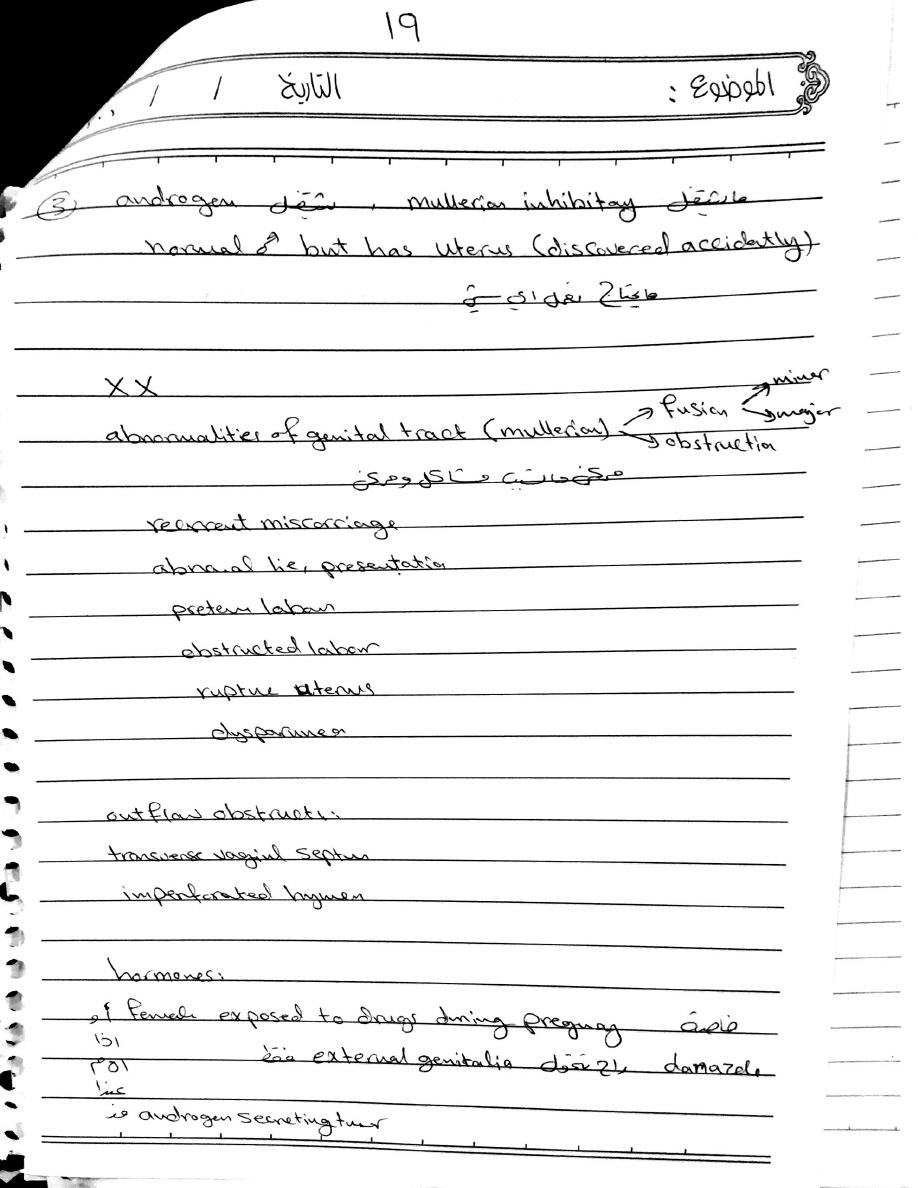 19
الموضوع : التاريخ / /
③ androgen بتشتغل , mullerian inhibitory مابتشتغل
normal ♂ but has uterus (discovered accidently)
مابحتاج نعمل اي شي
XX
abnormalities of genital tract (mullerian) → fusion → miner
→ major
→ obstruction
ممكن مشاكل وممكن
recurrent miscarriage
abnormal lie, presentation
preterm labour
obstructed labour
rupture uterus
dysparunea
outflow obstructi:
transverse vaginal septum
imperforated hymen
hormones:
female exposed to drugs during pregnancy خاصة أو
damazole راح تتحول external genitalia فقط
اذا
الام
عندها
androgen secreting tumr